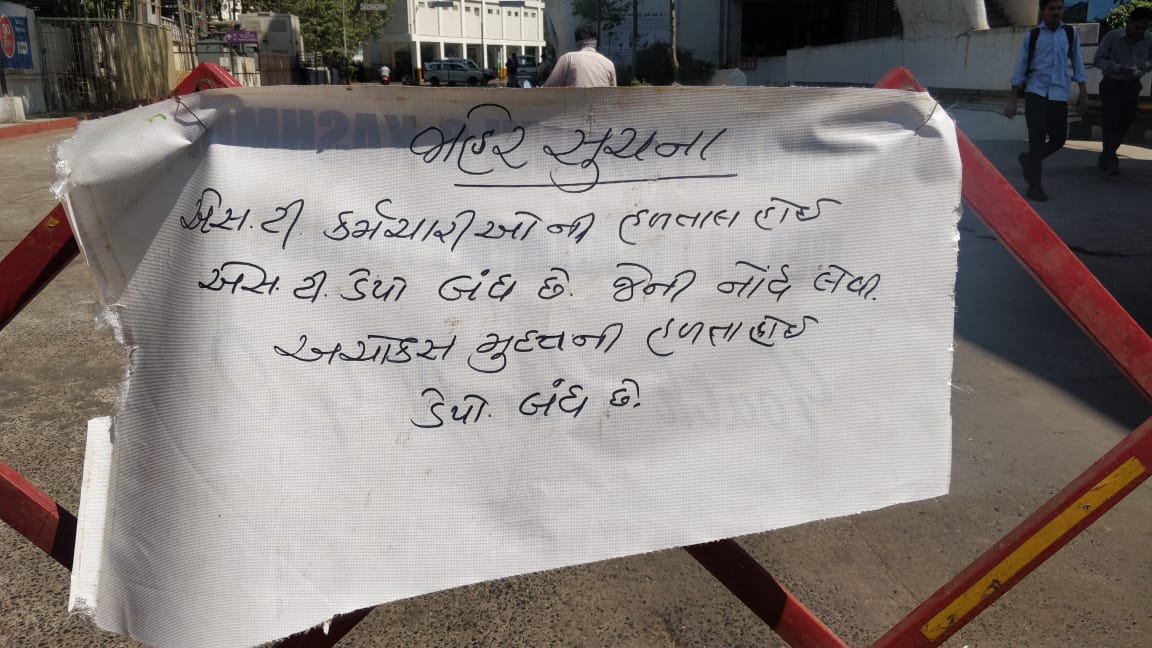 જાહેર સુચના
એસ.ટી. કર્મચારીઓની હળતાલ હોઈ
એસ.ટી. ડેપો બંધ છે. જેની નોંધ લેવી.
અચોકસ મુદતની હળતા હોઈ
ડેપો. બંધ છે.